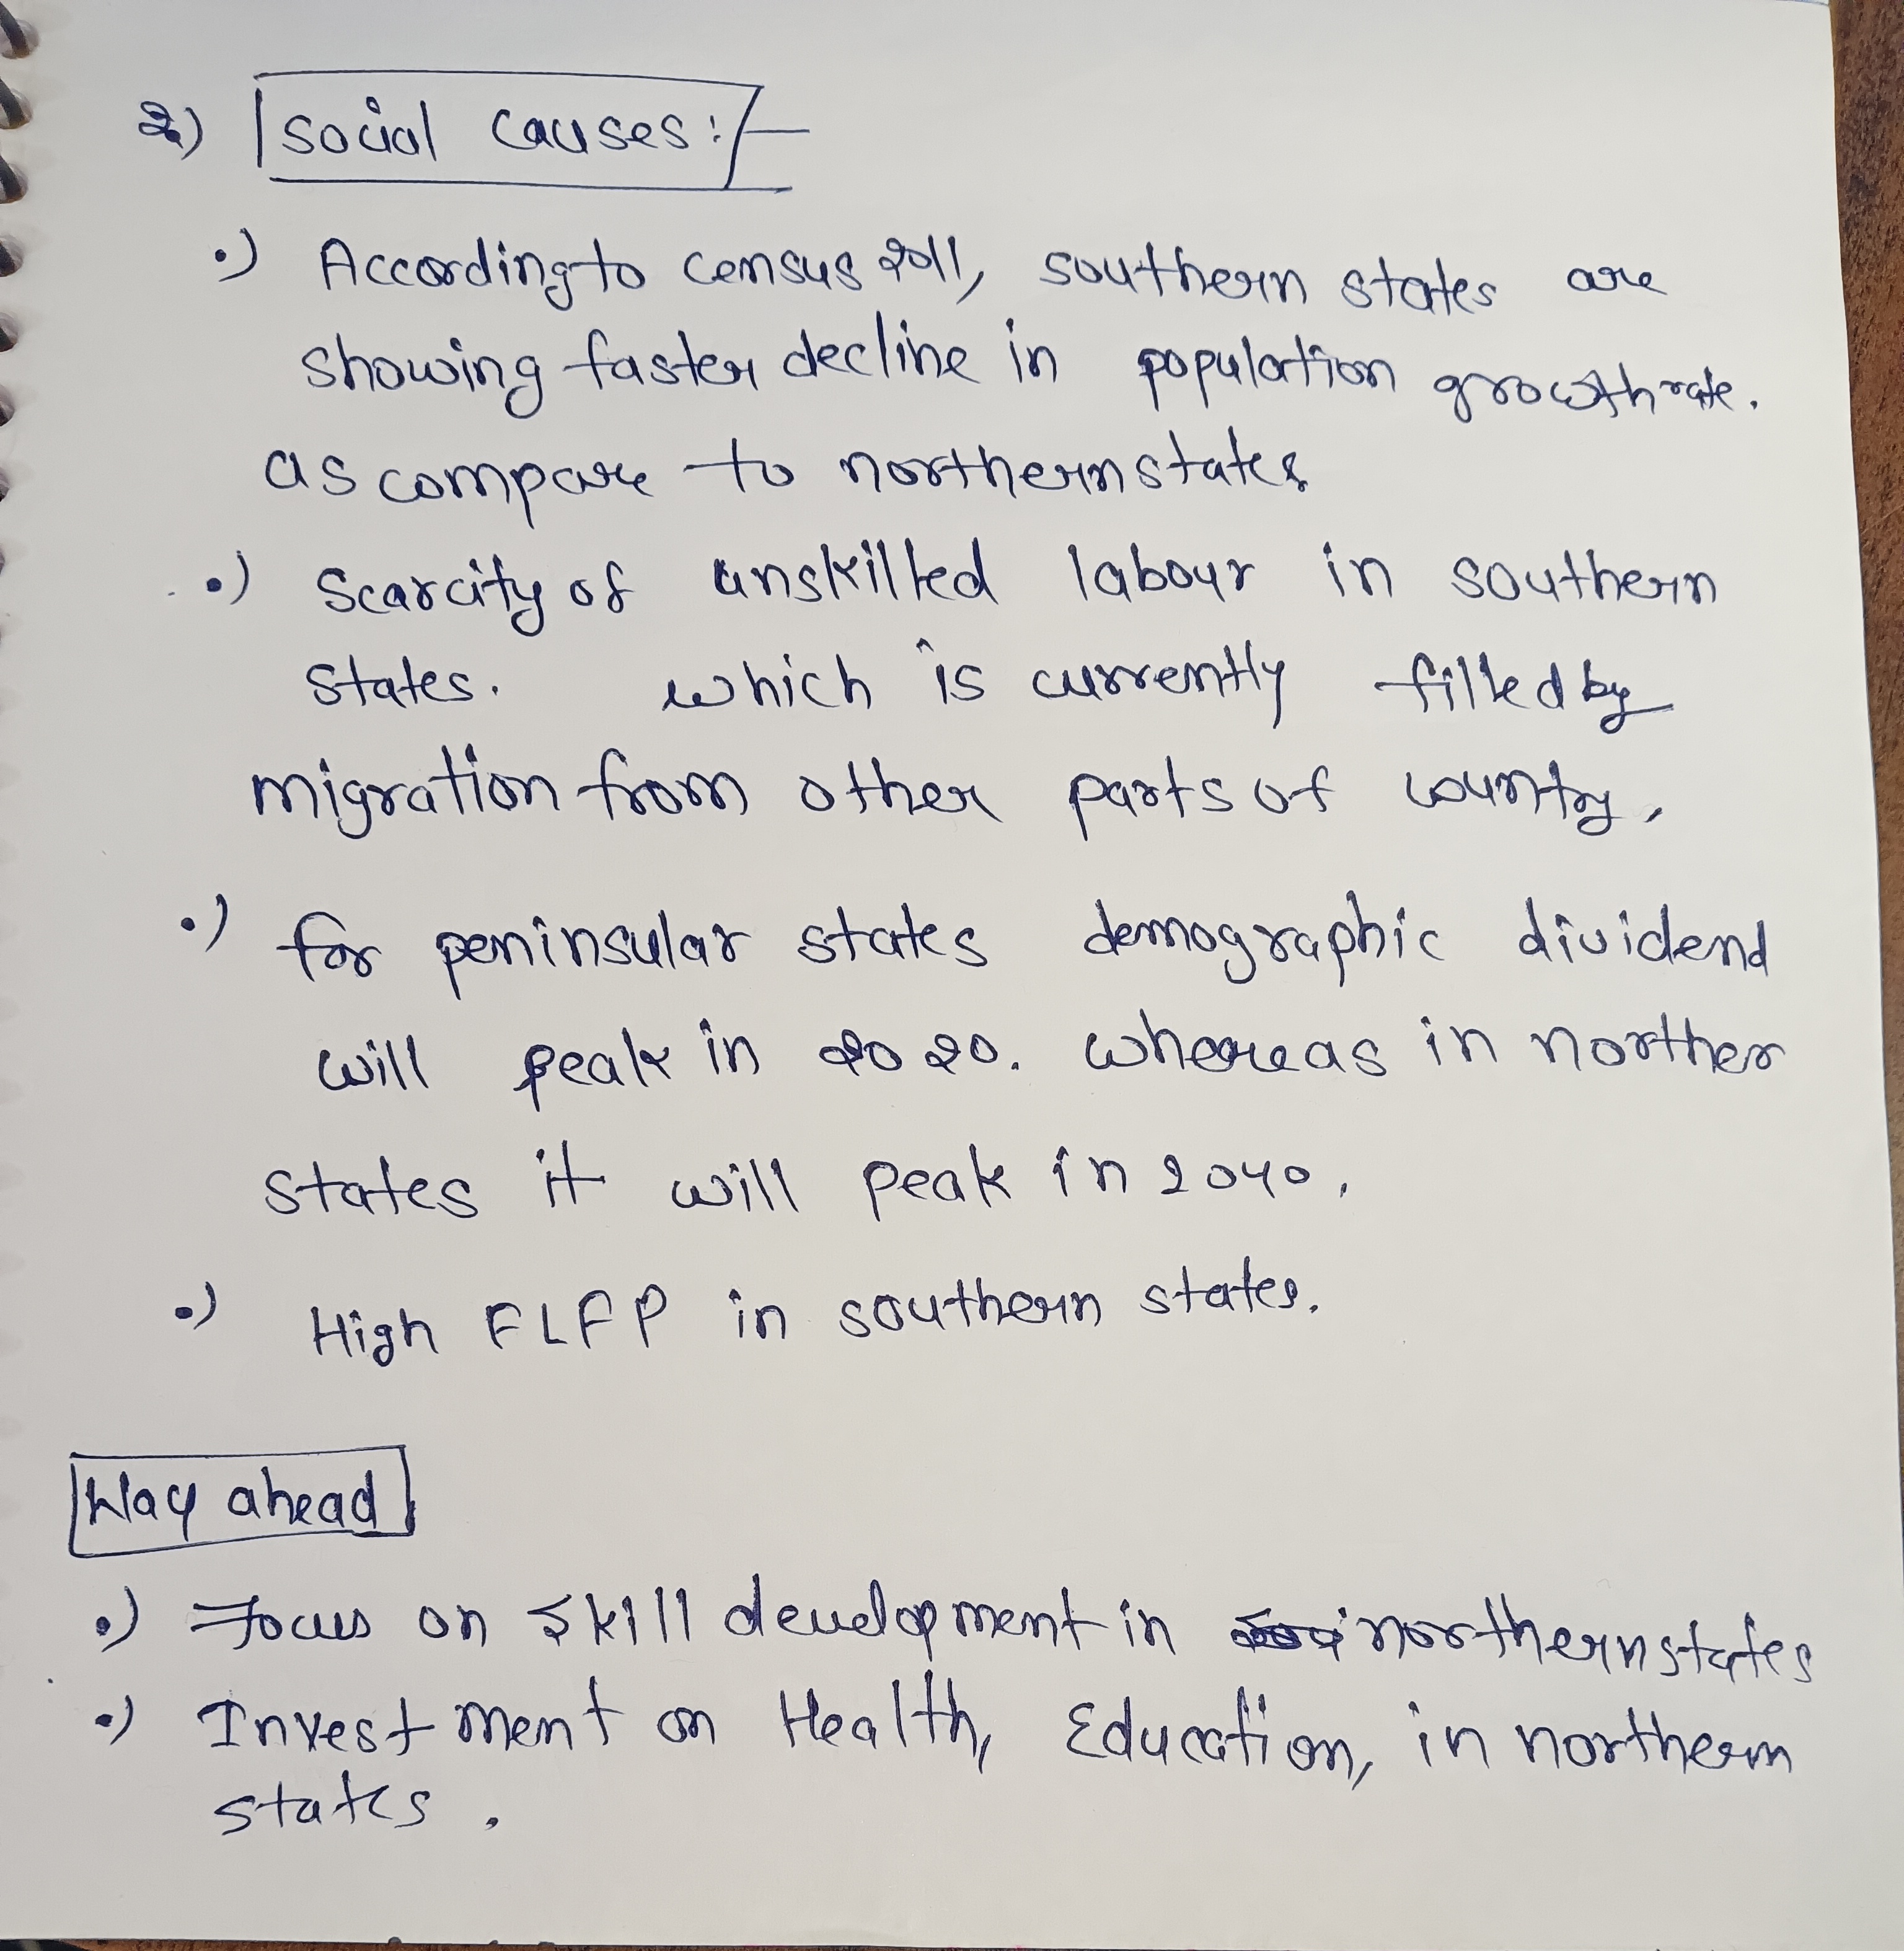 2) Social causes:-
•) According to census 2011, southern states are
showing faster decline in population growth rate.
as compare to northern states
•) Scarcity of unskilled labour in southern
states. which is currently filled by
migration from other parts of country.
•) for peninsular states demographic dividend
will peak in 2020. whereas in norther
states it will peak in 2040.
•) High FLFP in southern states.
Way ahead
•) Focus on skill development in northern states
•) Investment on Health, Education, in northern
states.